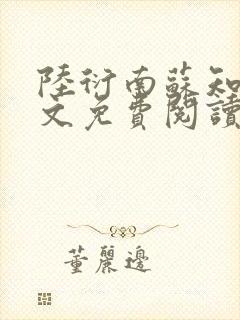 陸衍南蘇知
文免費閱讀
董麗邊